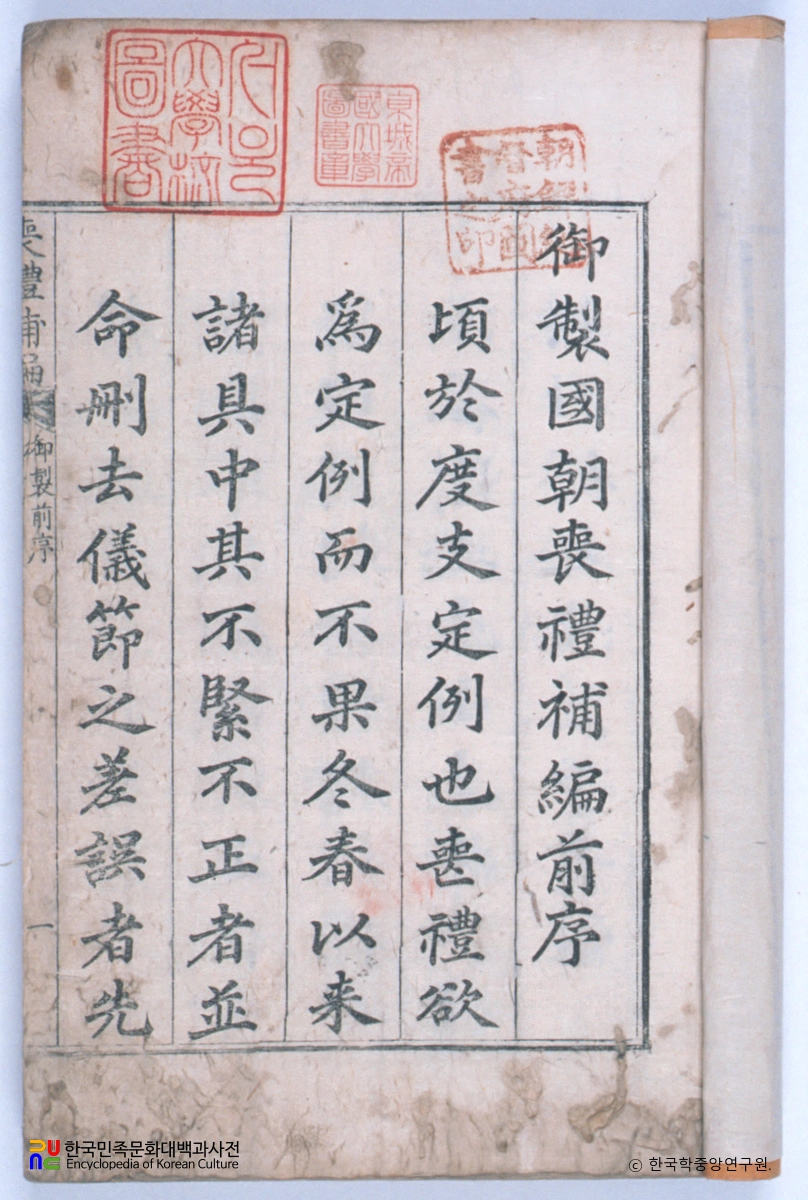 御製國朝喪禮補編前序
頃於度支定例也喪禮欲
爲定例而不果冬春以来
諸具中其不緊不正者並
命刪去儀節之差誤者先
喪禮補編
御製前序
一
서울大學校圖書
京城帝國大學圖書章
朝鮮總督府圖書之印
한국민족문화대백과사전
Encyclopedia of Korean Culture
© 한국학중앙연구원.